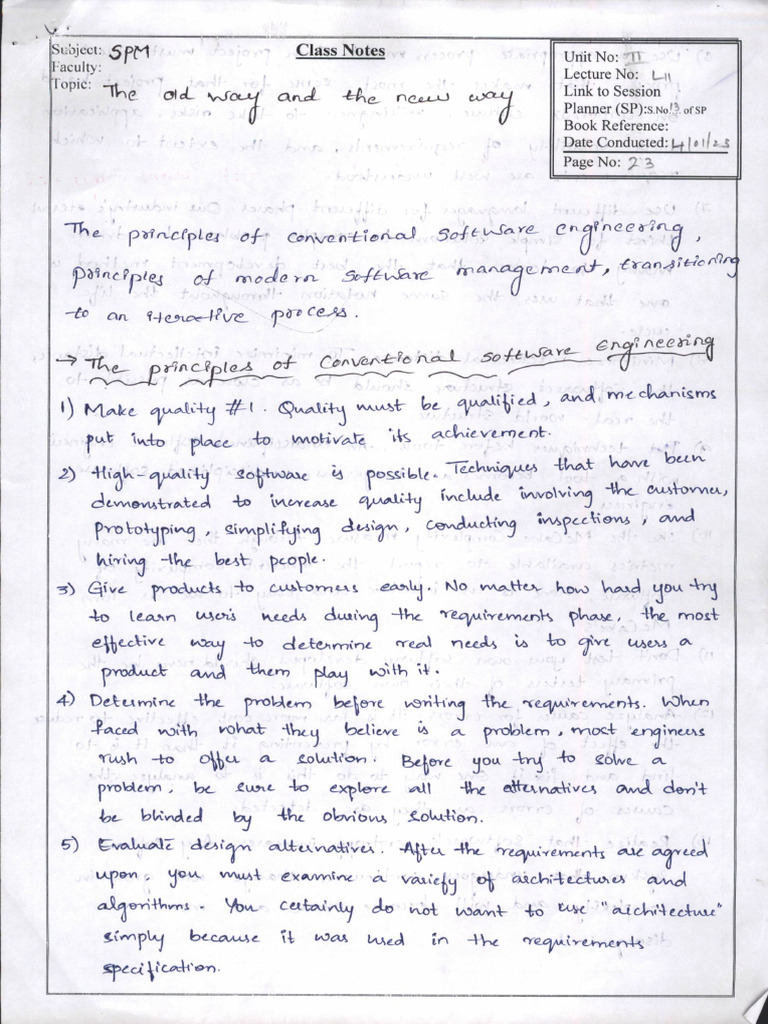 Class Notes
Subject: SPM
Faculty:
Topic: The old way and the new way
Unit No: II
Lecture No: L11
Link to Session
Planner (SP):S.No13 of SP
Book Reference:
Date Conducted:4/01/23
Page No: 23
The principles of conventional software engineering,
principles of modern software management, transitioning
to an iterative process.
→ The principles of conventional software Engineering
1) Make quality #1. Quality must be qualified, and mechanisms
put into place to motivate its achievement.
2) High-quality software is possible. Techniques that have been
demonstrated to increase quality include involving the customer,
Prototyping, simplifying design, conducting inspections, and
hiring the best people.
3) Give products to customers early. No matter how hard you try
to learn users needs during the requirements phase, the most
effective way to determine real needs is to give users a
product and them play with it.
4) Determine the problem before writing the requirements. When
faced with what they believe is a problem, most engineers
rush to offer a solution. Before you try to solve a
problem, be sure to explore all the alternatives and don't
be blinded by the obvious solution.
5) Evaluate design alternatives. After the requirements are agreed
upon, you must examine a variety of architectures and
algorithms. You certainly do not want to use "architecture"
simply because it was used in the requirements
specification.